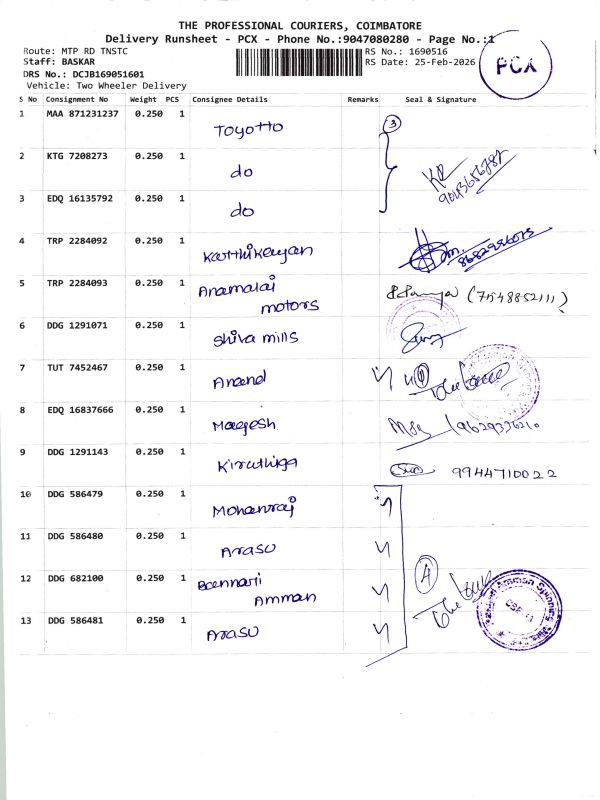 THE PROFESSIONAL COURIERS, COIMBATORE
Delivery Runsheet - PCX - Phone No.:9047080280 - Page No.:1
Route: MTP RD TNSTC
RS No.: 1690516
Staff: BASKAR
RS Date: 25-Feb-2026
PCX
DRS No.: DCJB169051601
Vehicle: Two Wheeler Delivery
S No Consignment No Weight PCS Consignee Details Remarks Seal & Signature
1 MAA 871231237 0.250 1 Toyotto 3
2 KTG 7208273 0.250 1 do
3 EDQ 16135792 0.250 1 do
4 TRP 2284092 0.250 1 Karthikeyan
5 TRP 2284093 0.250 1 Anamalai motors (7548852111)
6 DDG 1291071 0.250 1 Shiva mills
7 TUT 7452467 0.250 1 Anand
8 EDQ 16837666 0.250 1 Magesh 9629336210
9 DDG 1291143 0.250 1 Kiruthiga 9944710022
10 DDG 586479 0.250 1 Mohanraj
11 DDG 586480 0.250 1 Arasu
12 DDG 682100 0.250 1 Bannari Amman 4
13 DDG 586481 0.250 1 Arasu